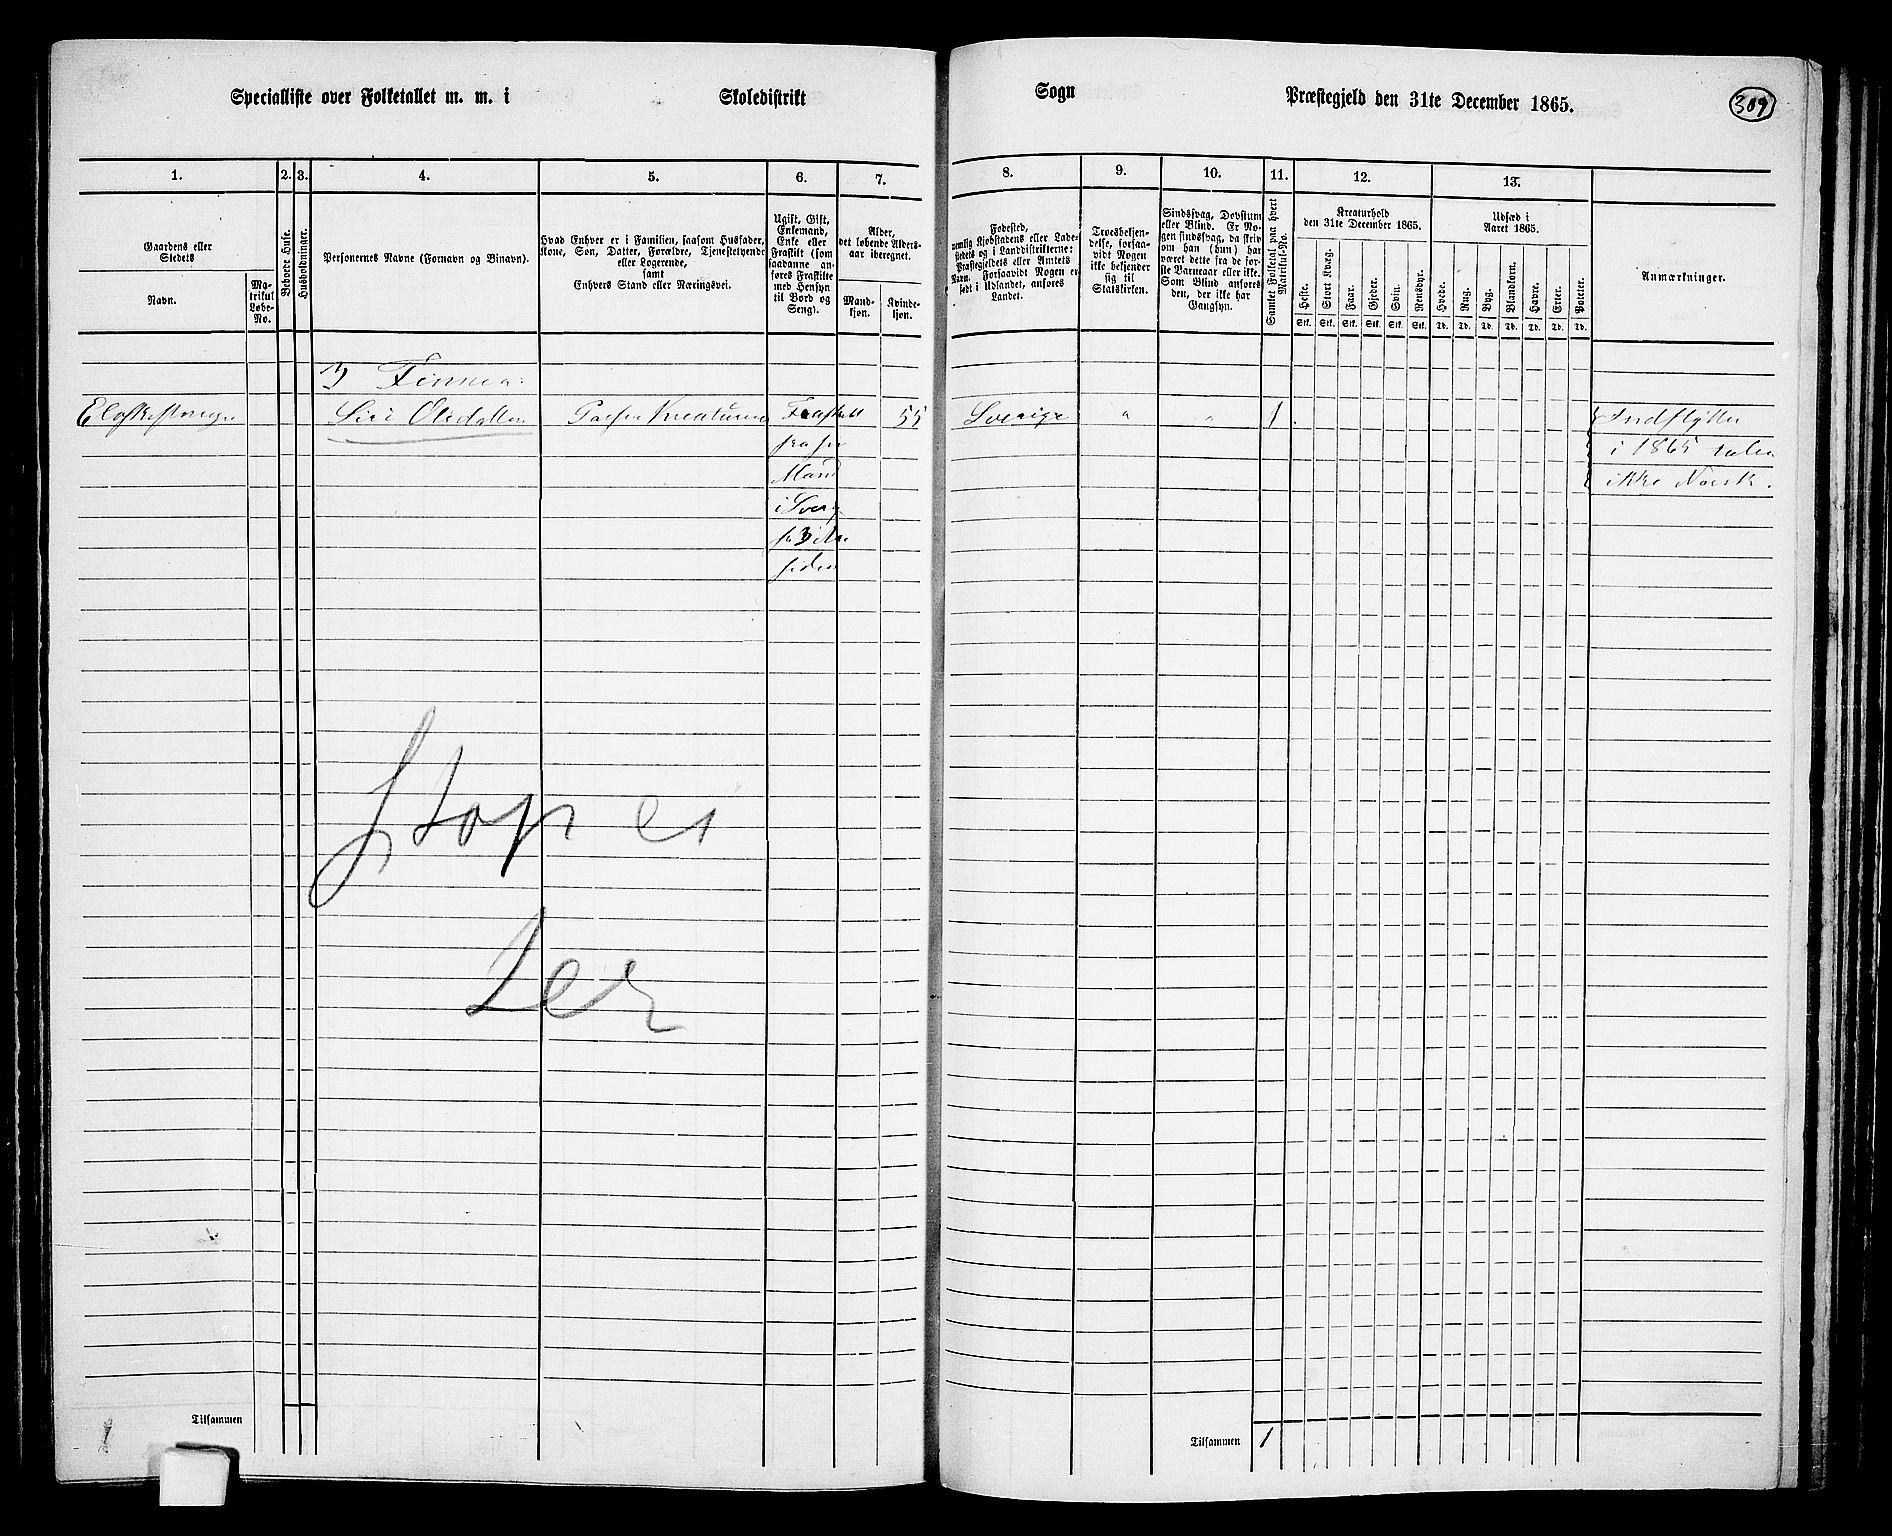 Specialliste over Folketallet m. m. i Skoledistrikt
Sogn Præstegjeld den 31te December 1865.
309
1. 2. 3. 4. 5. 6. 7.
Gaardens eller
Stedets
Navn.
Ma-
trikul
Løbe-
No.
Beboede Huse.
Husholdninger.
Personernes Navne (Fornavn og Binavn).
Hvad Enhver er i Familien, saasom Husfader,
Kone, Søn, Datter, Forældre, Tjenestetyende
eller Logerende,
samt
Enhvers Stand eller Næringsvei.
Ugift, Gift,
Enkemand,
Enke eller
Fraskilt (som
saadanne an-
føres Fraskilte
med Hensyn
til Bord og
Seng).
Alder,
det løbende Alders-
aar iberegnet.
Mand-
kjøn.
Kvinde-
kjøn.
8. 9. 10. 11. 12. 13.
Fødested,
nemlig Kjøbstadens eller Lade-
stedets og i Landdistrikterne:
Præstegjeldets eller Amtets
Navn. Forsaavidt Nogen er
født i Udlandet, anføres
Landet.
Troesbekjen-
delse, forsaa-
vidt Nogen
ikke bekjender
sig til
Statskirken.
Sindssvag, Døvstum
eller Blind. Er No-
gen sindssvag, da skriv
om han (hun) har
været dette fra de før-
ste Barneaar eller ikke.
Som Blind anføres
den, der ikke har
Gangsyn.
Samlet Folketal paa hvert
Matrikul-No.
Kreaturhold
den 31te December 1865.
Heste.
Stort Kvæg.
Faar.
Gjeder.
Svin.
Rensdyr.
Stk. Stk. Stk. Stk. Stk. Stk.
Udsæd i
Aaret 1865.
Hvede.
Rug.
Byg.
Blandkorn.
Havre.
Erter.
Poteter.
Td. Td. Td. Td. Td. Td. Td.
Anmærkninger.
Siri 55 Sverige " " 1 Indflytter
fra sin
Mand
i Sverig
siden
i 1865
ikke Norsk.
Stopper
Tilsammen
Tilsammen 1